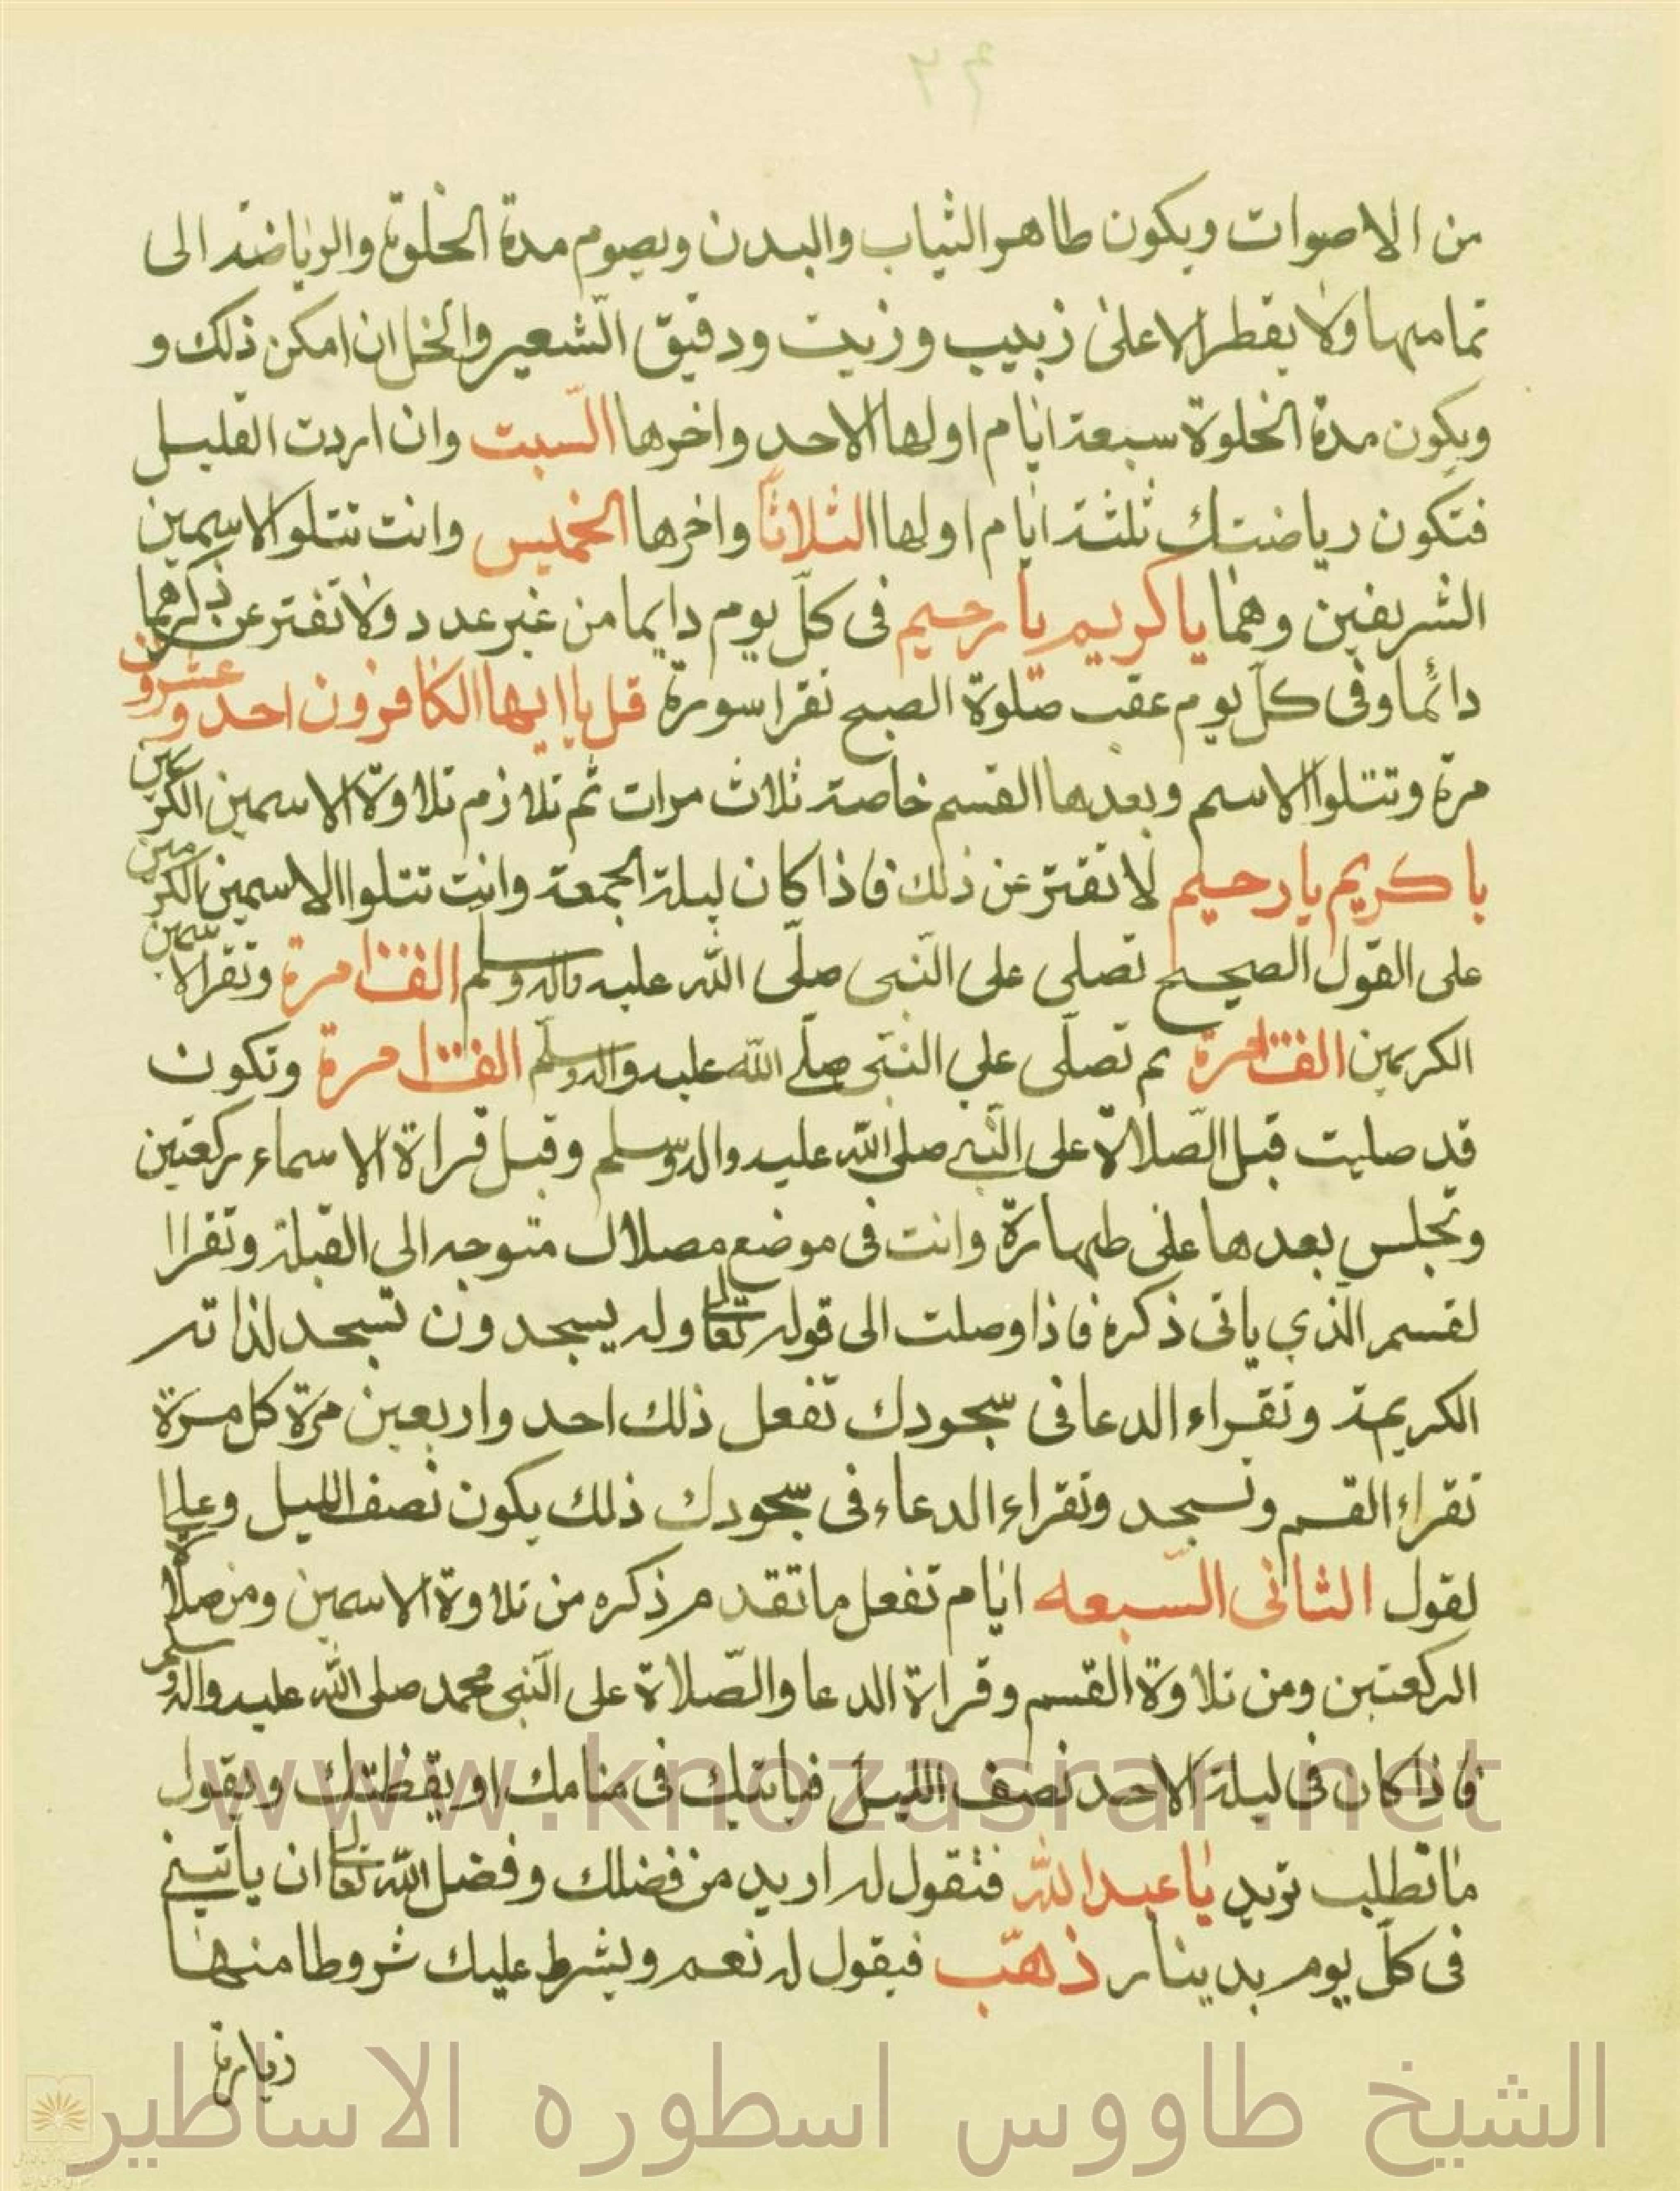 من الاصوات ويكون طاهر الثياب والبدن ويصوم مدة الخلوة والرياضة الى
تمامها ولا يفطر الا على زبيب وزيت ودقيق الشعير والخل ان امكن ذلك و
ويكون مدة الخلوة سبعة ايام اولها الاحد واخرها السبت وان اردت القليل
فتكون رياضتك ثلثة ايام اولها الثلاثا واخرها الخميس وانت تتلوا الاسمين
الشريفين وهما يا كريم يا رحيم فى كل يوم دايما من غير عدد ولا تفتر عن ذكرهما
دائما وفى كل يوم عقب صلوة الصبح تقرا سورة قل يا ايها الكافرون احد وعشرون
مرة وتتلوا الاسم وبعدها القسم خاصة ثلاث مرات ثم تلازم تلاوة الاسمين الكريمين
يا كريم يا رحيم لا تفتر عن ذلك فاذا كان ليلة الجمعة وانت تتلوا الاسمين الكريمين
على القول الصحيح تصلى على النبى صلى الله عليه واله وسلم الفا مرة وتقرا الاسمين
الكريمين الفا مرة ثم تصلى على النبى صلى الله عليه واله وسلم الفا مرة وتكون
قد صليت قبل الصلاة على النبى صلى الله عليه واله وسلم وقبل قراة الاسماء ركعتين
وتجلس بعدها على طهارة وانت فى موضع مصلاك متوجه الى القبلة وتقرا ا
لقسم الذي ياتى ذكره فاذا وصلت الى قوله تعالى وله يسجدون تسجد لذاته
الكريمة وتقراء الدعا فى سجودك تفعل ذلك احد واربعين مرة كل مرة
تقراء القسم وتسجد وتقراء الدعاء فى سجودك ذلك يكون نصف الليل وعلى ا
لقول الثانى السبعه ايام تفعل ما تقدم ذكره من تلاوة الاسمين ومن صلاة
الركعتين ومن تلاوة القسم وقراة الدعا والصلاة على النبى محمد صلى الله عليه واله وسلم
فاذا كان فى ليلة الاحد نصف الليل فياتيك فى منامك او يقظتك ويقول
ما تطلب تريد يا عبد الله فتقول له اريد من فضلك وفضل الله تعالى ان ياتينى
فى كل يوم بدينار ذهب فيقول له نعم ويشرط عليك شروطا منها
زيارة
www.knozasrar.net
الشيخ طاووس اسطوره الاساطير